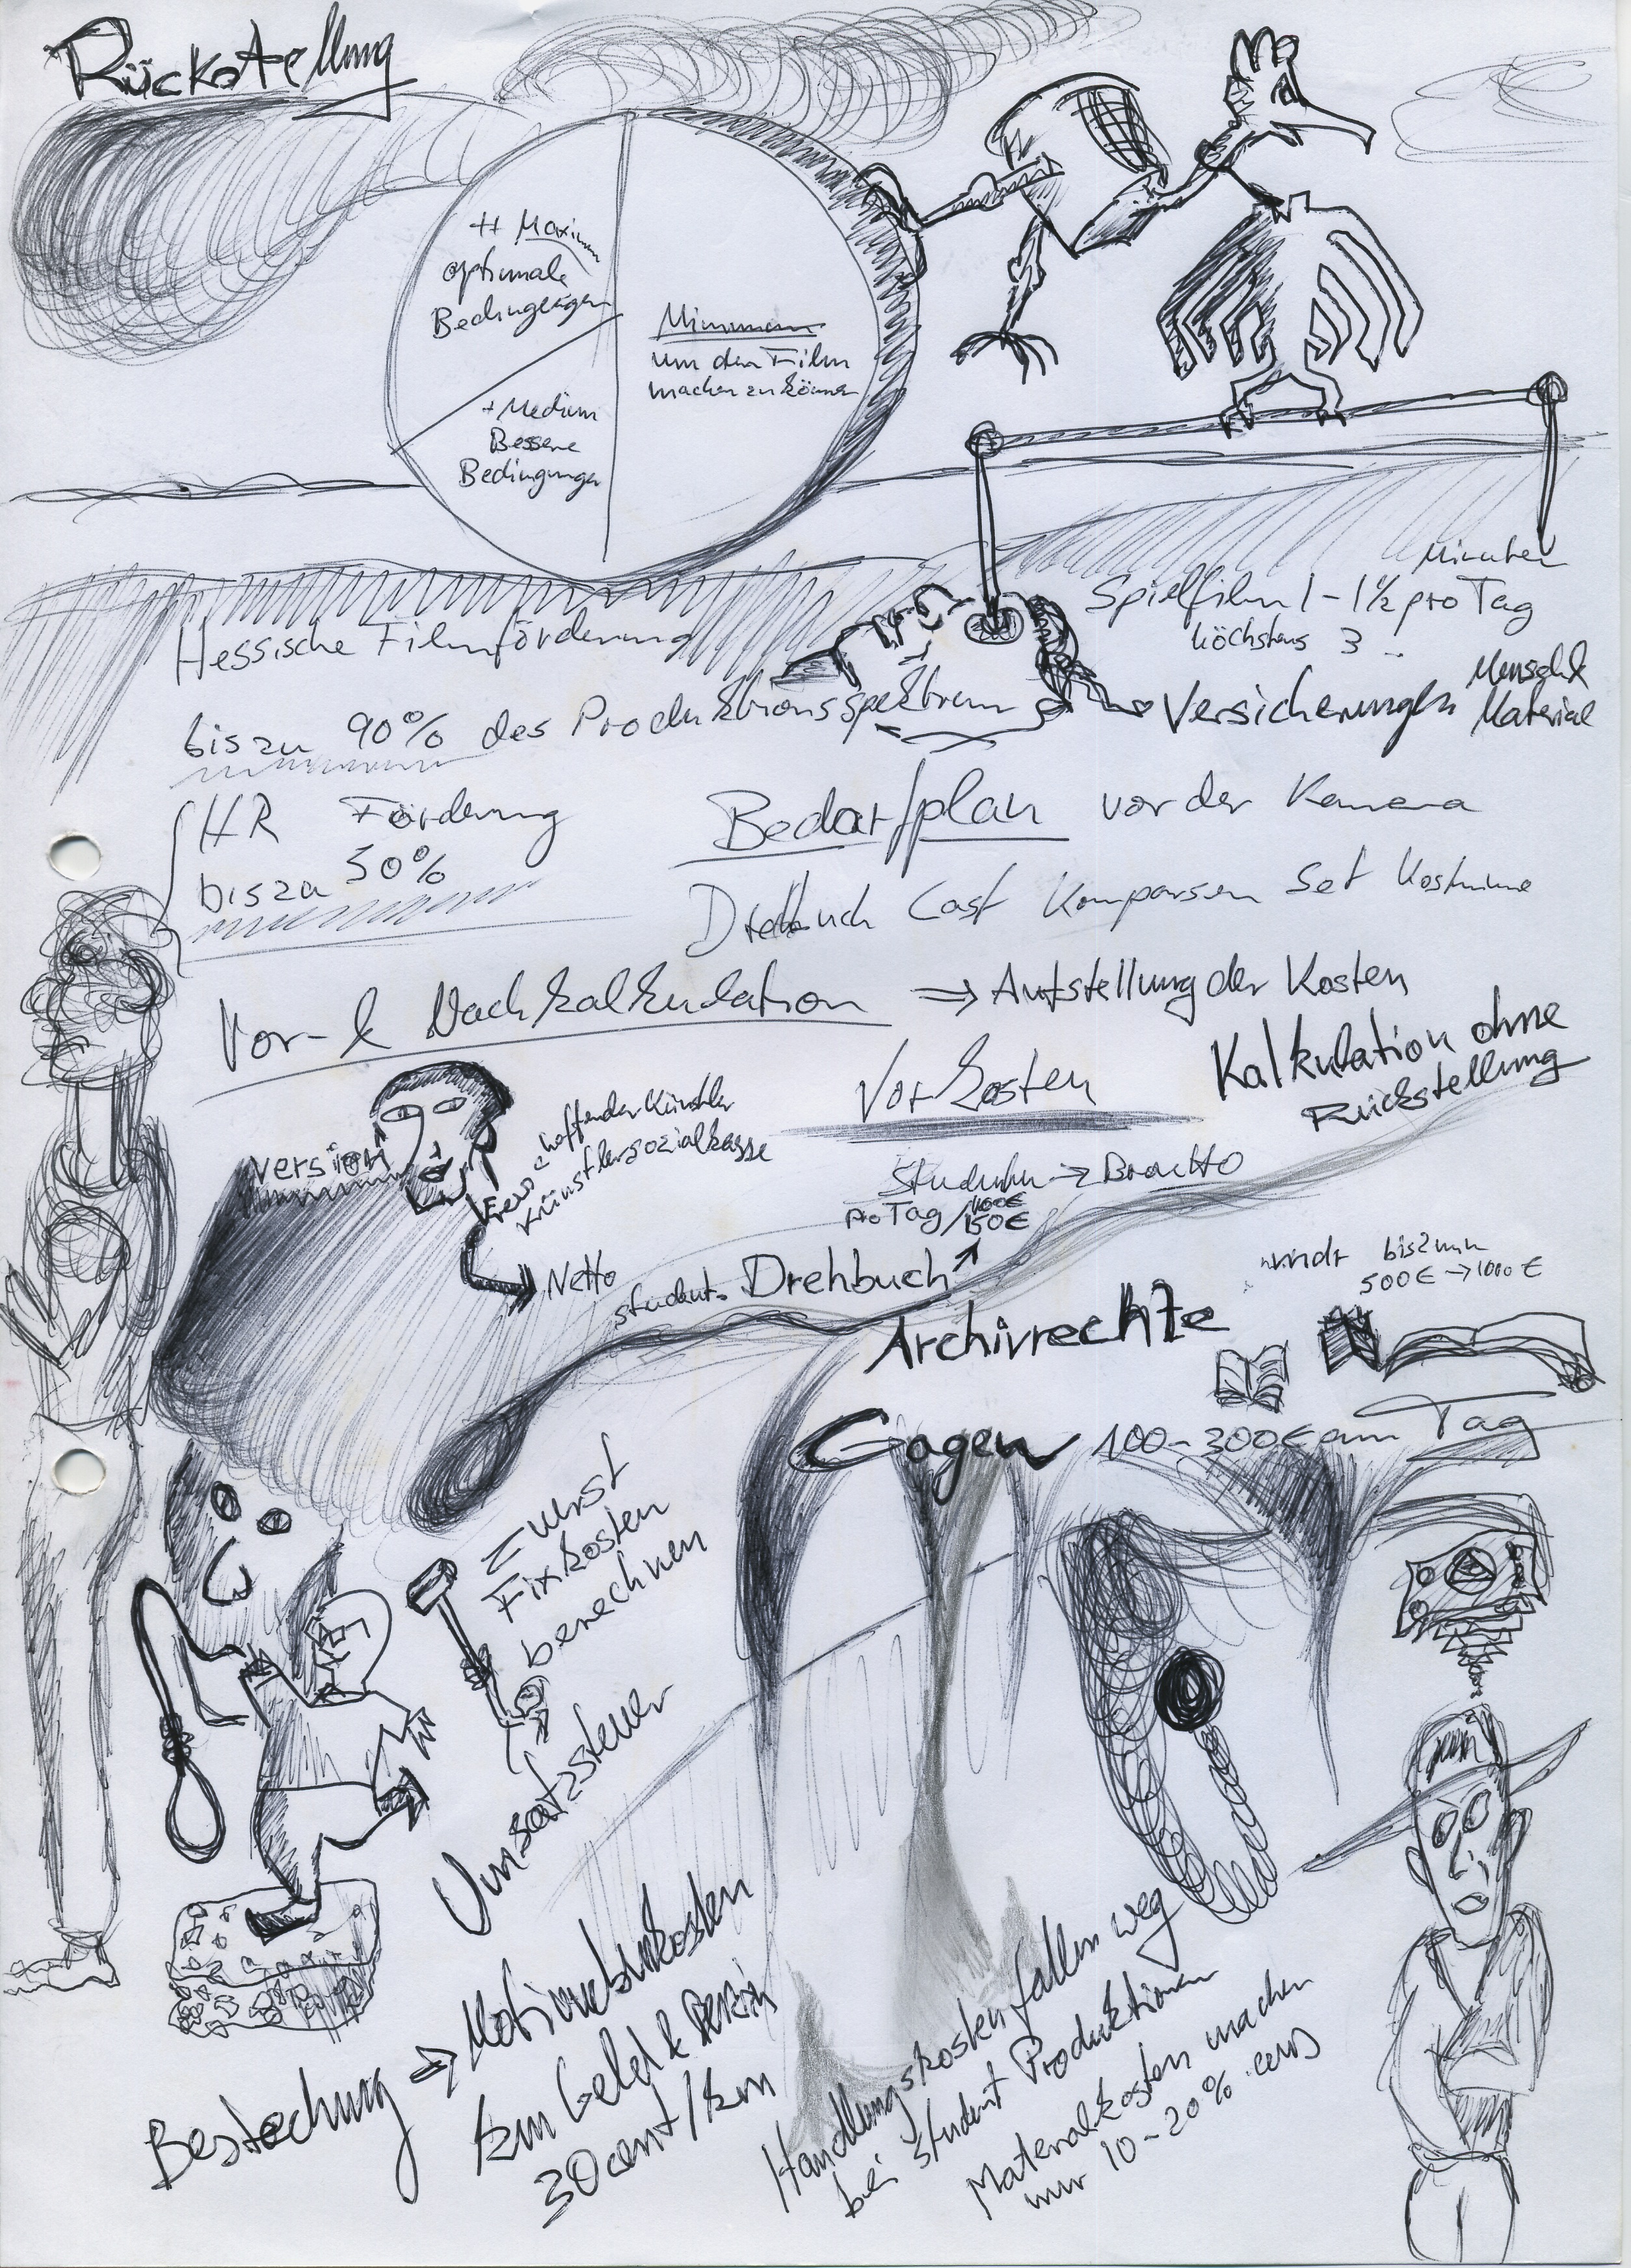 Rückstellung
++ Maximum
optimale
Bedingungen
Minimum
um den Film
machen zu können
+ Medium
Bessere
Bedingungen
Minuten
Spielfilm 1-1½ pro Tag
höchstens 3
Hessische Filmförderung
bis zu 90% des Produktionsspektrum
Versicherungen Mensch &
Material
HR Förderung
bis zu 50%
Bedarfplan vor der Kamera
Drehbuch Cast Komparsen Set Kostüme
Vor- & Nachkalkulation ⇒ Aufstellung der Kosten
Kalkulation ohne
Rückstellung
Vorkosten
version
Künstlersozialkasse
Netto
Studenten → Brutto
pro Tag / 100€
150€
student. Drehbuch
bis zum
500€ → 1000€
Archivrechte
Gagen 100-300€ am Tag
Zuerst
Fixkosten
berechnen
Umsatzsteuer
Bestechung ⇒ Motivnebenkosten
km Geld & Benzin
30cent/km
Handlungskosten fallen weg
bei student Produktionen
Materialkosten machen
nur 10-20% aus